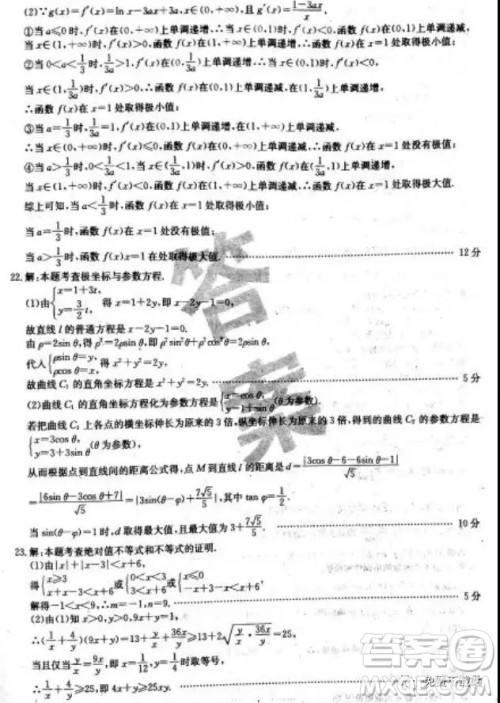 (2)∵g(x)=f'(x)=ln x-3ax+3a,x∈(0,+∞),且 g'(x)=\frac{1-3ax}{x}.
①当 a≤0时,f'(x)在(0,+∞)上单调递增.∴当 x∈(0,1)时,f'(x)<0,函数 f(x)单调递减;
当 x∈(1,+∞)时,f'(x)>0,函数 f(x)在(1,+∞)上单调递增.∴函数 f(x)在 x=1 处取得极小值;
②当 0<a<\frac{1}{3}时,\frac{1}{3a}>1,f'(x)在(0,\frac{1}{3a})上单调递增.∴当 x∈(0,1)时,f'(x)<0,函数 f(x)单调递减;
当 x∈(1,\frac{1}{3a})时,f'(x)>0,函数 f(x)在(1,\frac{1}{3a})上单调递增,
∴函数 f(x)在 x=1 处取得极小值;
③当 a=\frac{1}{3}时,\frac{1}{3a}=1,f'(x)在(0,1)上单调递增,f'(x)在(1,+∞)上单调递减.
当 x∈(0,+∞)时,f'(x)≤0,函数 f(x)在(0,+∞)上单调递减,∴函数 f(x)在 x=1 处无极值.
④当 a>\frac{1}{3}时,0<\frac{1}{3a}<1,当 x∈(\frac{1}{3a},1)时,f'(x)>0,函数 f(x)在(\frac{1}{3a},1)上单调递增;
当 x∈(1,+∞)时,f'(x)<0,函数 f(x)单调递减,∴函数 f(x)在 x=1 处取得极大值.
综上可知,当 a<\frac{1}{3}时,函数 f(x)在 x=1 处取得极小值;
当 a=\frac{1}{3}时,函数 f(x)在 x=1 处无极值;
当 a>\frac{1}{3}时,函数 f(x)在 x=1 处取得极大值. 12分
22.解:本题考查极坐标与参数方程.
(1)由{x=1+3t, y=\frac{3}{2}t 得 x=1+2y,即 x-2y-1=0,
故直线 l 的普通方程是 x-2y-1=0.
由 ρ=2sin θ,得 ρ²=2ρsin θ,即 ρ²sin²θ+ρ²cos²θ=2ρsin θ,
代入{ρcos θ=x, ρsin θ=y 得 x²+y²=2y,
故曲线 C₁ 的直角坐标方程是 x²+y²=2y. 5分
(2)曲线 C₁ 的直角坐标方程化为参数方程是{x=cos θ, y=1+sin θ (θ 为参数).
若把曲线 C₁ 上各点的横坐标伸长为原来的 3 倍,纵坐标伸长为原来的 3 倍,得到的曲线方程是
{x=3cos θ, y=3+3sin θ (θ 为参数),
从而根据点到直线间的距离公式得,点 M 到直线 l 的距离是 d=\frac{|3cos θ-6-6sin θ-1|}{√5}
=\frac{|6sin θ-3cos θ+7|}{√5}=|3sin(θ-φ)+\frac{7√5}{5}|,其中 tan φ=\frac{1}{2}.
当 sin(θ-φ)=1 时,d 取得最大值,且最大值为 3+\frac{7√5}{5}. 10分
23.解:本题考查绝对值不等式和不等式的证明.
(1)由|x|+|x-3|<x+6,
得{x≥3, x+x-3<x+6 或{0<x<3, x+3-x<x+6 或{x≤0, -x+3-x<x+6, 5分
解得-1<x<9,∴m=-1,n=9.
(2)由(1)知 x>0,y>0,9x+y=1,
∴(\frac{1}{x}+\frac{4}{y})(9x+y)=13+\frac{y}{x}+\frac{36x}{y}≥13+2\sqrt{\frac{y}{x}·\frac{36x}{y}}=25,
∴\frac{1}{x}+\frac{4}{y}≥25,即 4x+y≥25xy.
答案
答案圈